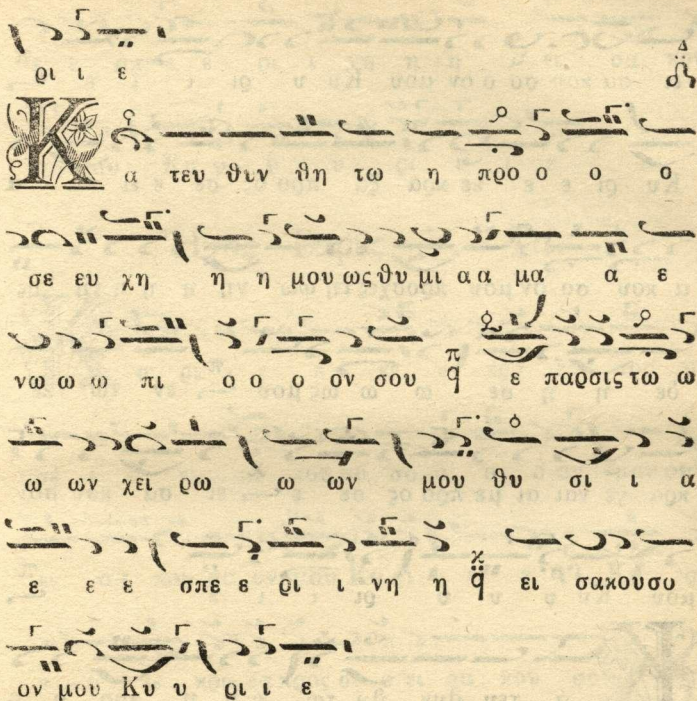 ρι ι ε
Κ α τευ θυν θη τω η προ ο ο ο
σε ευ χη η η μου ως θυ μι α α μα α ε
νω ω ω πι ο ο ο ον σου π q ε παρσις τω ω
ω ων χει ρω ω ων μου θυ σι ι α
ε ε ε σπε ε ρι ι νη η q ει σακουσο
ον μου Κυ υ ρι ι ε